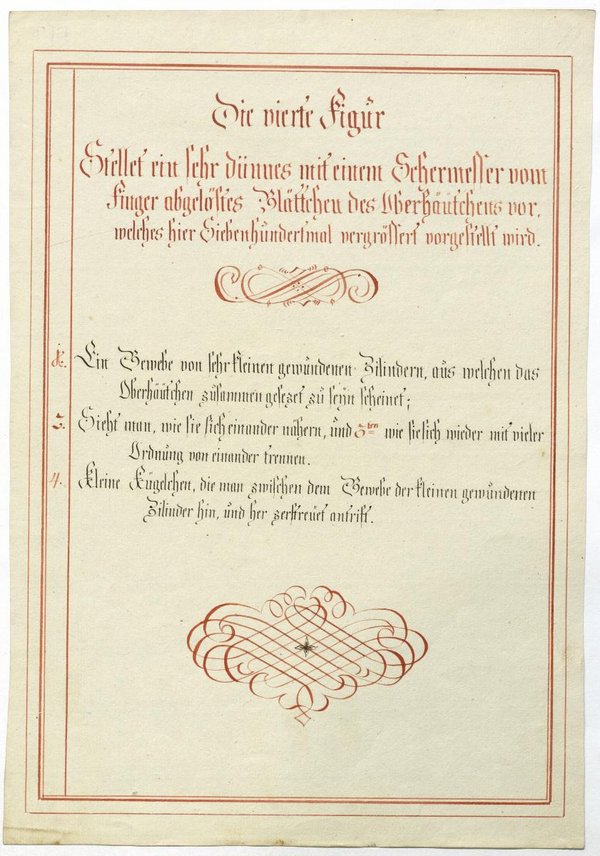 Die vierte Figur
Stellet ein sehr dünnes mit einem Schermesser vom
Finger abgelöstes Blättchen des Oberhäutchens vor,
welches hier Siebenhundertmal vergrössert vorgestellt wird.
Ein Gewebe von sehr kleinen gewundenen Zilindern, aus welchen das
Oberhäutchen zusammen gesezet zu seÿn scheinet;
3. Sieht man, wie sie sich einander nähern, und 3ten wie sie sich wieder mit vieler
Ordnung von einander trennen.
4. Kleine Kügelchen, die man zwischen dem Gewebe der kleinen gewundenen
Zilinder hin, und her zerstreuet antrift.